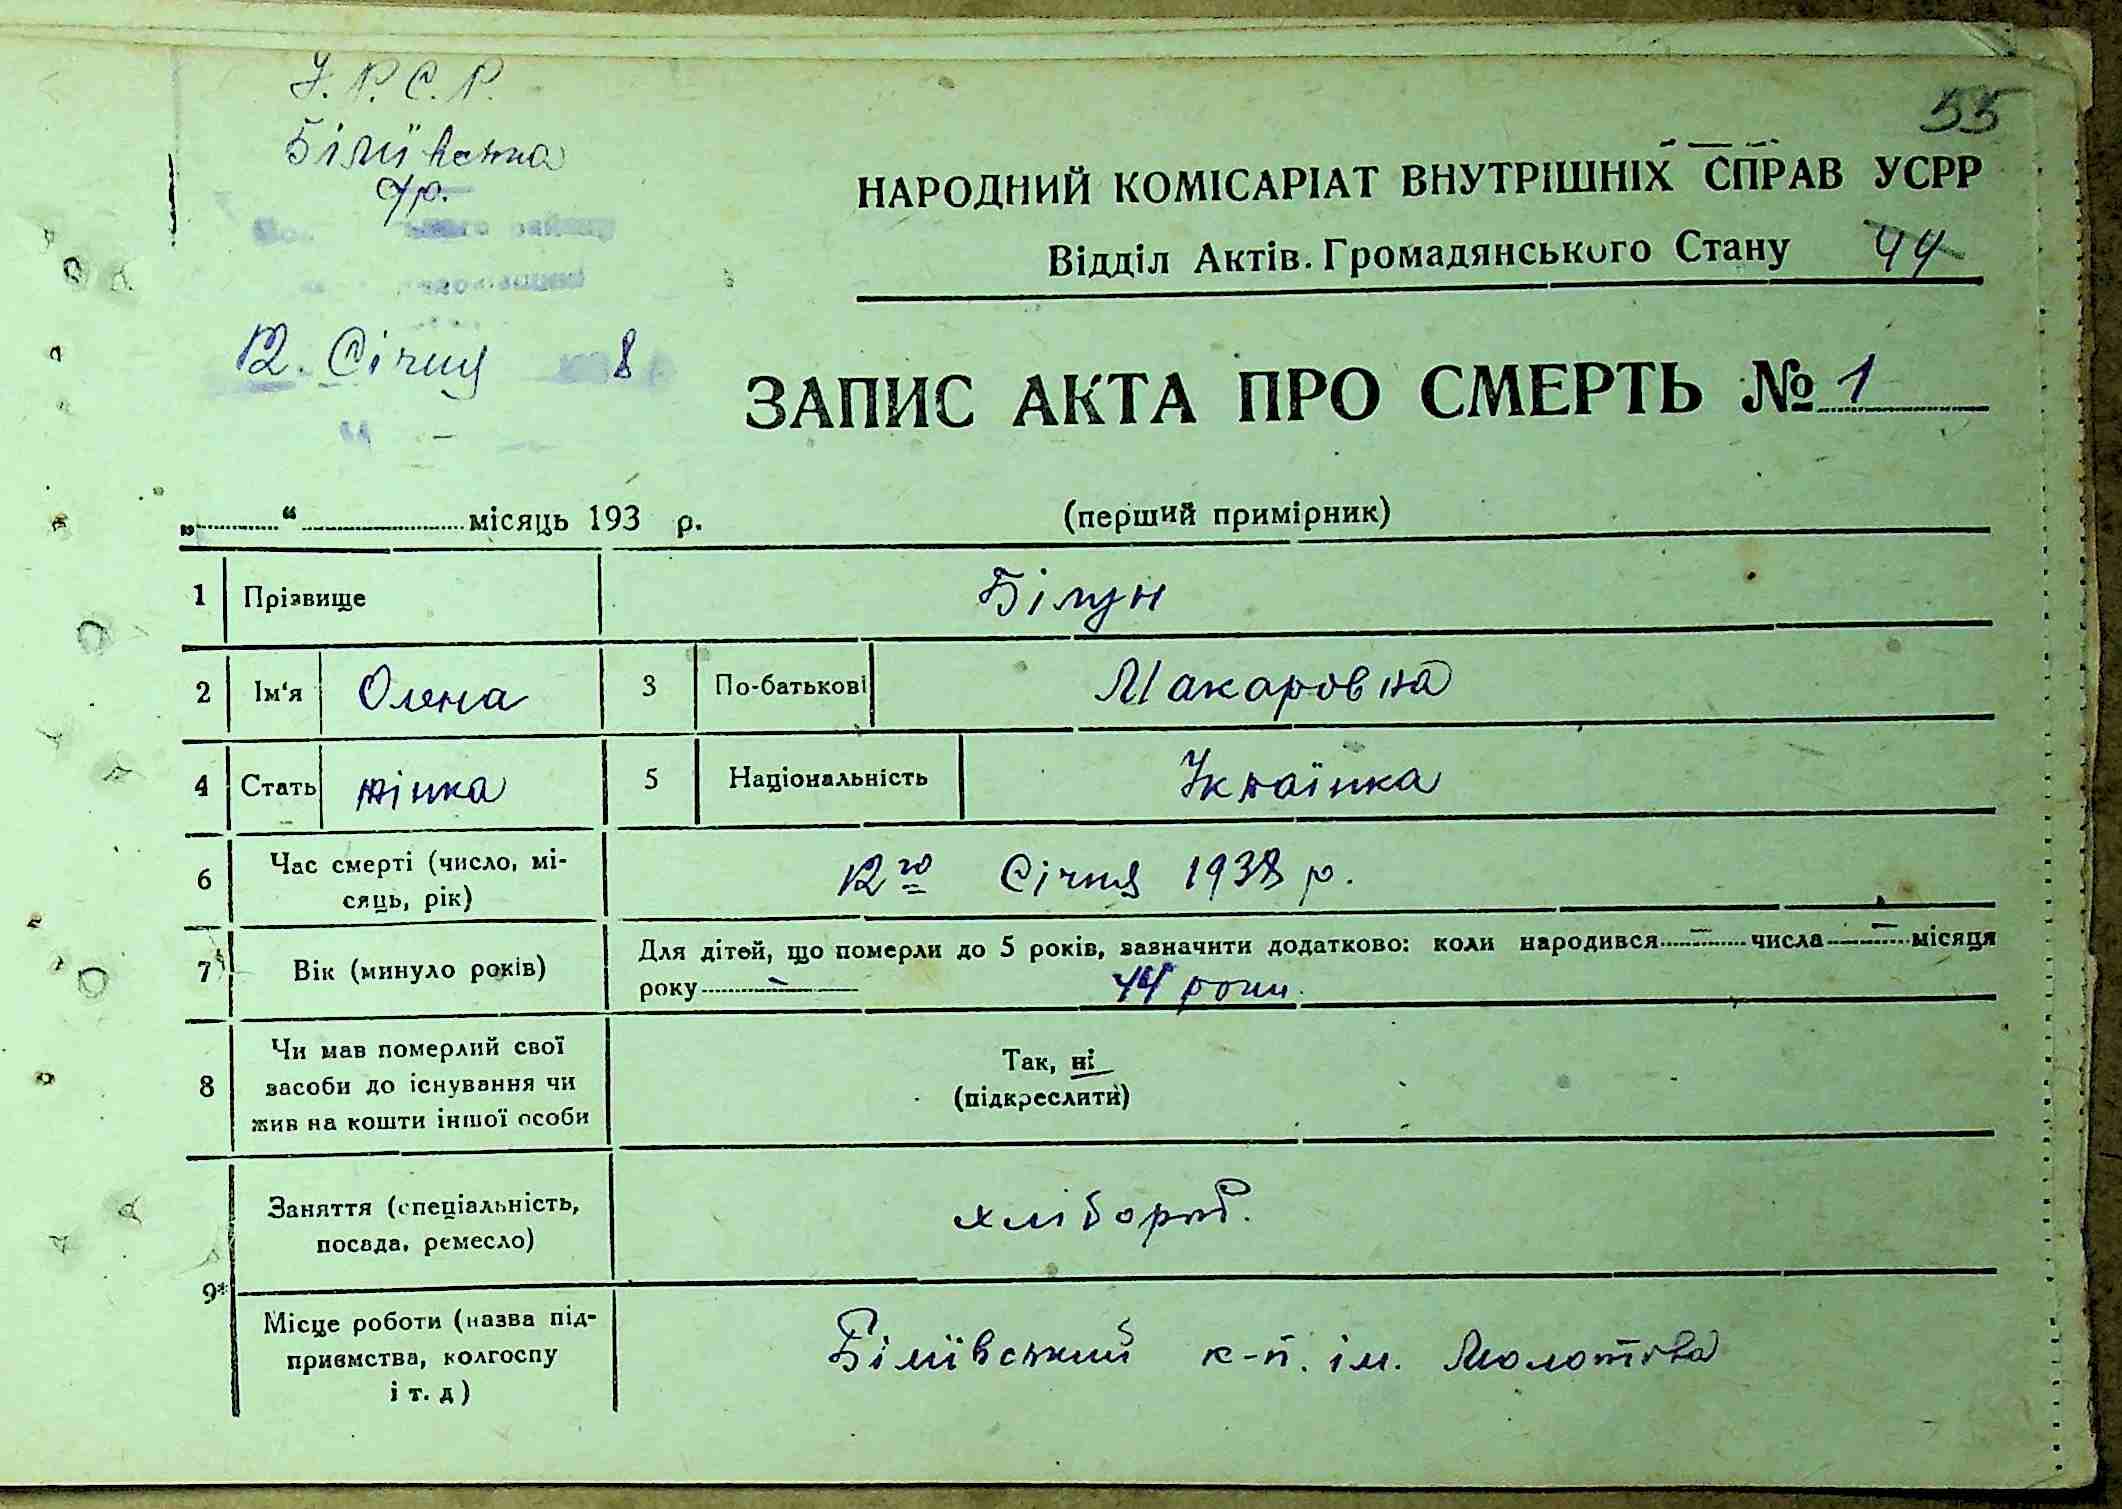 У.Р.С.Р.
55
Біліївська
с/р.
НАРОДНИЙ КОМІСАРІАТ ВНУТРІШНІХ СПРАВ УСРР
району
Відділ Актів. Громадянського Стану 44
12. Січня 8
ЗАПИС АКТА ПРО СМЕРТЬ № 1
„ “ місяць 193 р. (перший примірник)
1 Прізвище Білун
2 Ім'я Олена 3 По-батькові Макаровна
4 Стать жінка 5 Національність Українка
6 Час смерті (число, мі-
сяць, рік) 12го Січня 1938 р.
7 Вік (минуло років) Для дітей, що померли до 5 років, зазначити додатково: коли народився — числа — місяця
року — 44 роки.
8 Чи мав померлий свої
засоби до існування чи
жив на кошти іншої особи
Так, ні
(підкреслити)
9* Заняття (спеціальність,
посада, ремесло) хлібороб.
Місце роботи (назва під-
приємства, колгоспу
і т. д)
Біліївський к-п. ім. Молотова